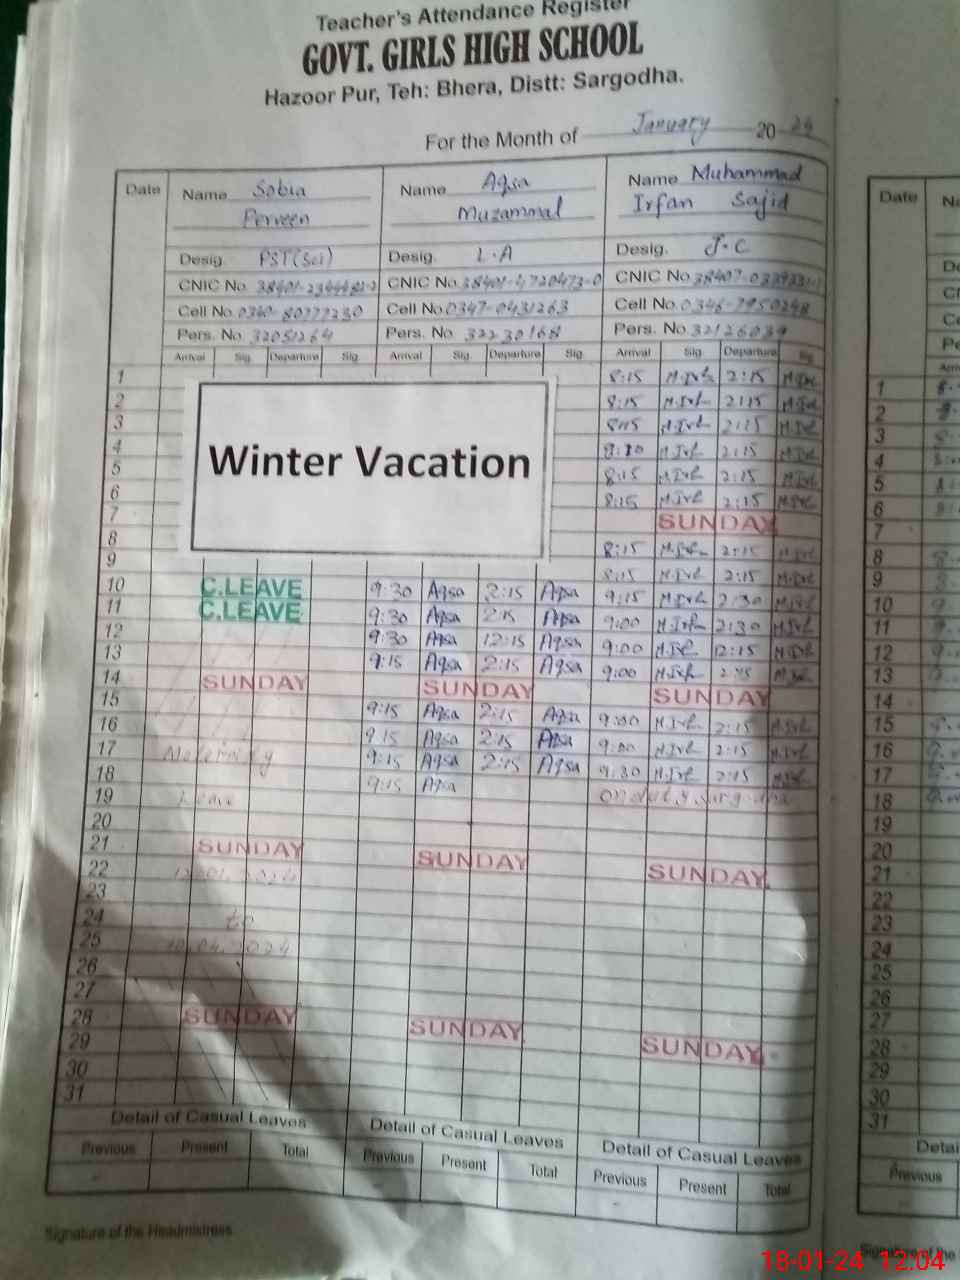 Teacher's Attendance Register
GOVT. GIRLS HIGH SCHOOL
Hazoor Pur, Teh: Bhera, Distt: Sargodha.
For the Month of January 20 24
Date Name Sobia Name Aqsa Name Muhammad
Perveen Muzammal Irfan Sajid
Desig. PST(Sci) Desig. L.A Desig. J.C
CNIC No. CNIC No. 38401-4720473-0 CNIC No.
Cell No. Cell No. 0347-0431263 Cell No. 0346-7950248
Pers. No. 32051264 Pers. No. 32230168 Pers. No. 32126039
Arrival Sig. Departure Sig. Arrival Sig. Departure Sig. Arrival Sig Departure Sig
1 8:15 M.Irf 2:15 M.Irf
2 8:15 M.Irf 2:15 M.Irf
3 8:15 M.Irf 2:15 M.Irf
4 M.Irf 2:15 M.Irf
5 8:15 M.Irf 2:15 M.Irf
6 8:15 M.Irf 2:15 M.Irf
Winter Vacation
7 SUNDAY
8 8:15 M.Irf 2:15 M.Irf
9 8:15 M.Irf 2:15 M.Irf
10 C.LEAVE 9:30 Aqsa 2:15 Aqsa 9:15 M.Irf 2:30 M.Irf
11 C.LEAVE 9:30 Aqsa 2:15 Aqsa 9:00 M.Irf 2:30 M.Irf
12 9:30 Aqsa 12:15 Aqsa 9:00 M.Irf 12:15 M.Irf
13 9:15 Aqsa 2:15 Aqsa 9:00 M.Irf 2:15 M.Irf
14 SUNDAY SUNDAY SUNDAY
15 9:15 Aqsa 2:15 Aqsa 9:00 M.Irf 2:15 M.Irf
16 9:15 Aqsa 2:15 Aqsa 9:00 M.Irf 2:15 M.Irf
17 Maternity 9:15 Aqsa 2:15 Aqsa 9:30 M.Irf 2:15 M.Irf
18 9:15 Aqsa On duty Sargodha
19 Leave
20
21 SUNDAY SUNDAY SUNDAY
22 12.01.2024
23
24 to
25 10.04.2024
26
27
28 SUNDAY SUNDAY SUNDAY
29
30
31
Detail of Casual Leaves Detail of Casual Leaves Detail of Casual Leaves
Previous Present Total Previous Present Total Previous Present Total
Signature of the Headmistress
Date
1
2
3
4
5
6
7
8
9
10
11
12
13
14
15
16
17
18
19
20
21
22
23
24
25
26
27
28
29
30
31
Previous
18-01-24 12:04